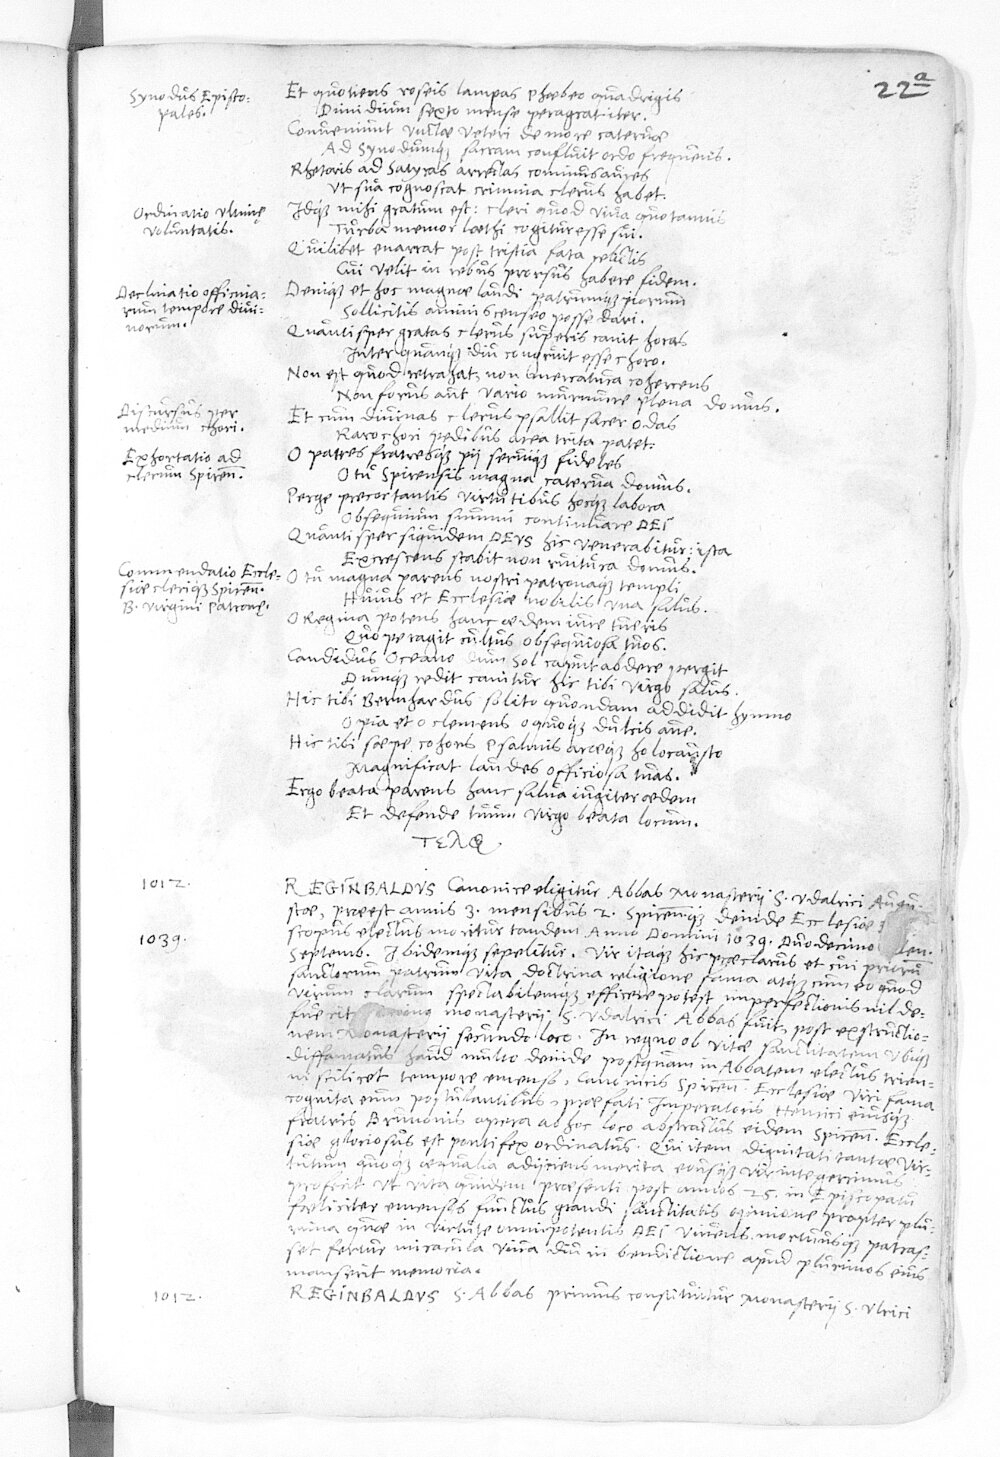 22a
Synodus Episto:
pales.
Et quotiens roseis lampas Phœbeo quadrigis
Dimidium sexto mense peragrat iter.
Conveniunt vnctæ veteri de more catervæ
Ad Synodumq; sacram confluit ordo frequens.
Rhetoris ad Satyras arrectas cominus aures
Vt sua cognoscat crimina clerus habet.
Ordinatio vltimę
voluntatis.
Idq; mihi gratum est: cleri quod viva quotannis
Turba memor læthi cogitur esse sui.
Quilibet enarrat post tristia fata relictis
Cui velit in rebus prorsus habere fidem.
Declinatio officina:
rum tempore divi:
norum.
Deniq; et hoc magnæ laudi patrumq; piorum
Sollicitis animis censeo posse dari.
Quantisper gratas clerus superis canit horas
Inter quanq; diu congruit esse choro.
Non est quod retrahat, non mercatura cohercens
Non forus aut vario murmure plena domus.
Discursus per
medium chori.
Et cum divinas clerus psallit sacer odas
Raro chori pedibus area trita patet.
Exhortatio ad
clerum Spiren̄.
O patres fratresq; pij servuiq; fideles
O tu Spirensis magna caterva domus.
Perge precor tantis virtutibus hocq; labora
Obsequium summi continuare DEI
Quantisper siquidem DEVS hic venerabitur: ista
Excrescens stabit non ruitura domus.
Commendatio Eccle-
siæ cleriq; Spiren̄.
B. Virgini Patronę.
O tu magna parens nostri patronaq; templi
Huius et Ecclesiæ nobilis vna salus.
O Regina potens hanc ædem iure tueris
Quo peragit cultus obsequiosa tuos.
Candidus Oceano dum Sol caput abdere pergit
Dumq; redit canitur hic tibi virgo salus.
Hic tibi Bernhardus solito quondam addidit hymno
O pia et o clemens o quoq; dulcis ave.
Hic tibi sæpe cohors psalmis aræq; holocausto
Magnificat laudes officiosa tuas.
Ergo beata parens hanc salva iugiter ædem
Et defende tuum virgo beata locum.
Τελος
1012.
REGINBALDVS Canonice eligitur Abbas Monasterij S. Vdalrici Augu-
stæ, præest annis 3. mensibus 2. Spiren̄q; deinde Ecclesiæ
1039.
scopus electus moritur tandem Anno Domini 1039. Duodecimo
Septemb. Ibidemq; sepelitur. Vir itaq; hic præclarus et cui priorū
sanctorum patrum vita doctrina religione fama atq; cum eo quod
virum clarum spectabilemq; efficere potest imperfectionis nil de-
fuerit monasterij S. Vdalrici Abbas fuit, post exstructio-
nem Monasterij secundo loco. In regno ob vitæ sanctitatem vbiq;
diffamatus haud multo deinde postquam in Abbatem electus trien-
ni scilicet tempore emenso, Canonicis Spiren̄. Ecclesiæ viri fama
cognita eum postulantibus, præfati Imperatoris Henrici eiusq;
fratris Brunonis opera ab hoc loco abstractus eidem Spiren̄. Eccle-
siæ gloriosus est pontifex ordinatus. Qui item dignitati tantæ vir-
tutum quoq; æqualia adijciens merita eousq; vir integerrimus
profecit vt vita quidem præsenti post annos 25. in Episcopatu
fæliciter emensos functus grandi sanctitatis opinione propter plu-
rima quæ in virtute omnipotentis DEI vivens mortuusq; patras-
set fertur miracula viva diu in bendictione apud plurimos eius
manserit memoria.
1012.
REGINBALDVS S. Abbas primus constituitur Monasterij S. Vlrici